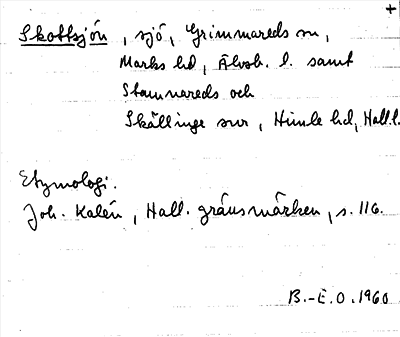 +
Skottsjön, sjö, Grimmareds sn,
Marks hd, Älvsb. l. samt
Stamnareds och
Skällinge snr, Himle hd, Hall. l.
Etymologi.
Joh. Kalén, Hall. gränsmärken, s. 116.
B.-E.O. 1960